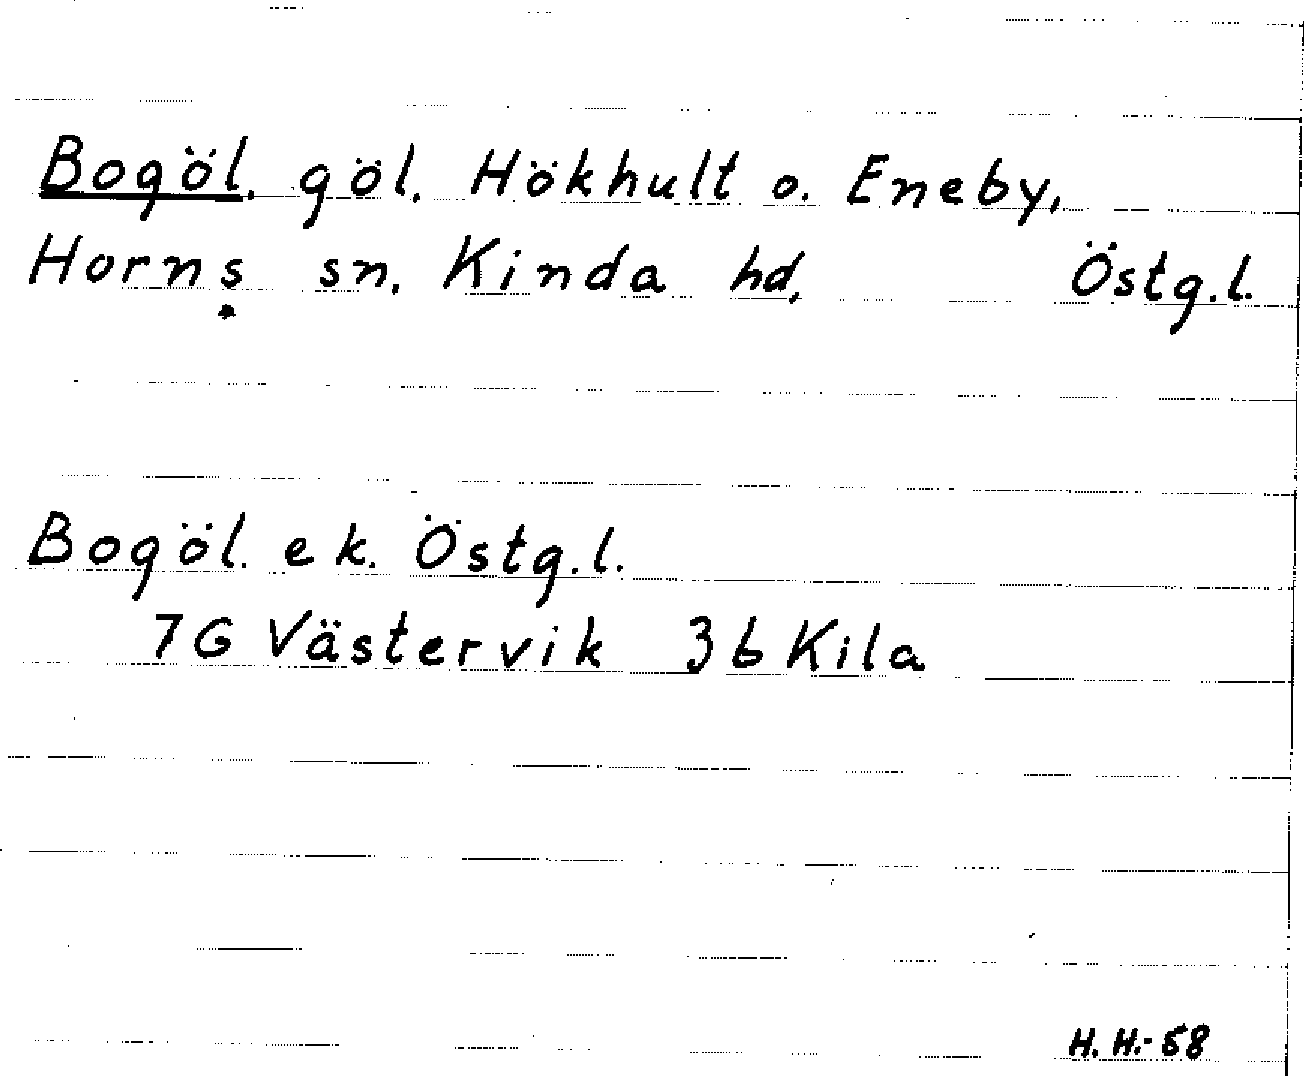 Bogöl, göl, Hökhult o. Eneby,
Horns sn, Kinda hd, Östg.l.
Bogöl. ek. Östg.l.
7G Västervik 3b Kila
H.H.-58